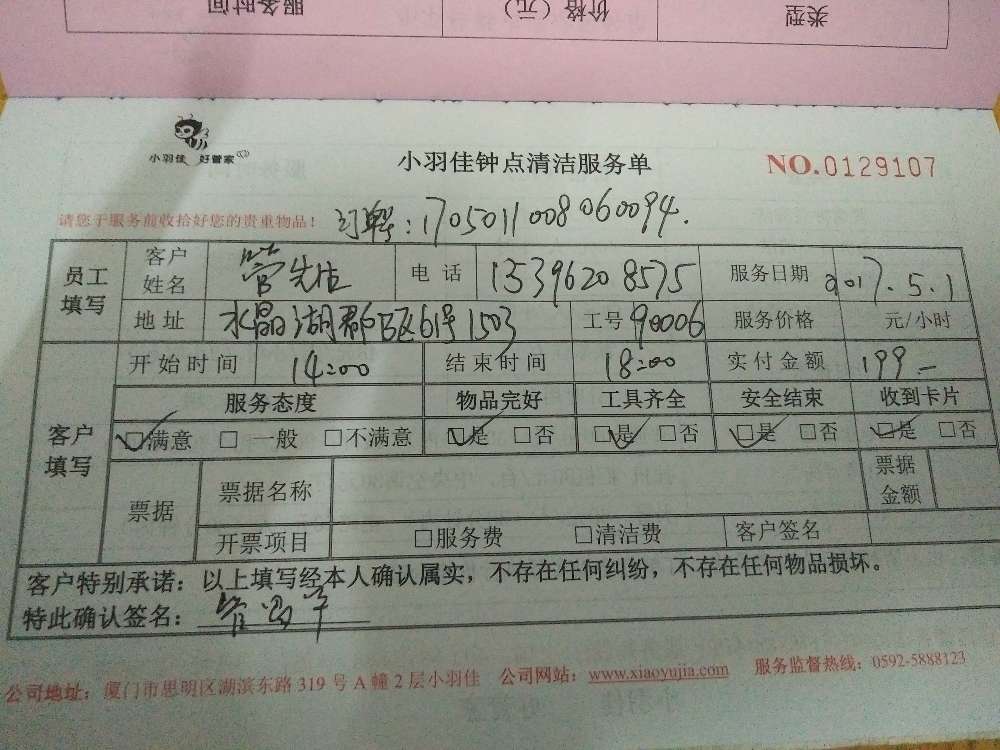 类型 价格（元） 服务时间
小羽佳 好管家
小羽佳钟点清洁服务单
NO.0129107
请您于服务前收拾好您的贵重物品！
订单:1705011008060094.
员工填写 客户姓名 管先生 电话 13396208575 服务日期 2017.5.1
地址 水晶湖郡B区61号1503 工号 90006 服务价格 元/小时
客户填写 开始时间 14:00 结束时间 18:00 实付金额 199-
服务态度 物品完好 工具齐全 安全结束 收到卡片
☑满意 □一般 □不满意 ☑是 □否 ☑是 □否 ☑是 □否 ☑是 □否
票据 票据名称 票据金额
开票项目 □服务费 □清洁费 客户签名
客户特别承诺：以上填写经本人确认属实，不存在任何纠纷，不存在任何物品损坏。
特此确认签名：
公司地址：厦门市思明区湖滨东路319号A幢2层小羽佳 公司网站：www.xiaoyujia.com 服务监督热线：0592-5888123